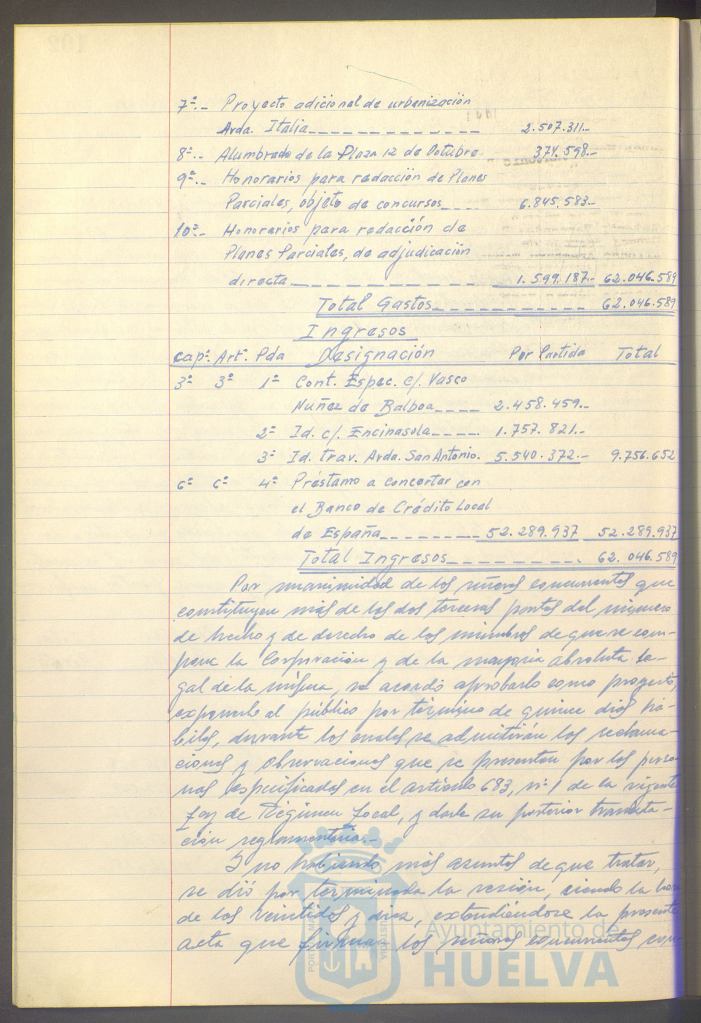 7º.- Proyecto adicional de urbanización
Avda. Italia 2.507.311.-
8º.- Alumbrado de la Plaza 12 de Octubre 374.598.-
9º.- Honorarios para redacción de Planes
Parciales, objeto de concursos 6.845.583.-
10º.- Honorarios para redacción de
Planes Parciales, de adjudicación
directa 1.599.187.- 62.046.589
Total Gastos 62.046.589
Ingresos
Cap º. Artº. Pda Designación Por Partida Total
3º 3º 1º Cont. Espec. c/. Vasco
Nuñez de Balboa 2.458.459.-
2º Id. c/. Encinasola 1.757.821.-
3º Id. trav. Avda. San Antonio. 5.540.372.- 9.756.652
6º 6º 4º Préstamo a concertar con
el Banco de Crédito Local
de España 52.289.937 52.289.937
Total Ingresos 62.046.589
Por unanimidad de los señores concurrentes que
constituyen más de las dos terceras partes del número
de hecho y de derecho de los miembros de que se com-
pone la Corporación y de la mayoría absoluta le-
gal de la misma, se acordó aprobarlo como proyecto,
exponerle al público por término de quince días há-
biles, durante los cuales se admitirán las reclama-
ciones y observaciones que se presenten por las perso-
nas especificadas en el artículo 683, nº 1 de la vigente
Ley de Régimen Local, y darle su posterior tramita-
ción reglamentaria.-
Y no habiendo más asuntos de que tratar,
se dió por terminada la sesión, siendo la hora
de las veintidos y diez, extendiéndose la presente
acta que firman los señores concurrentes con-
Ayuntamiento de
HUELVA